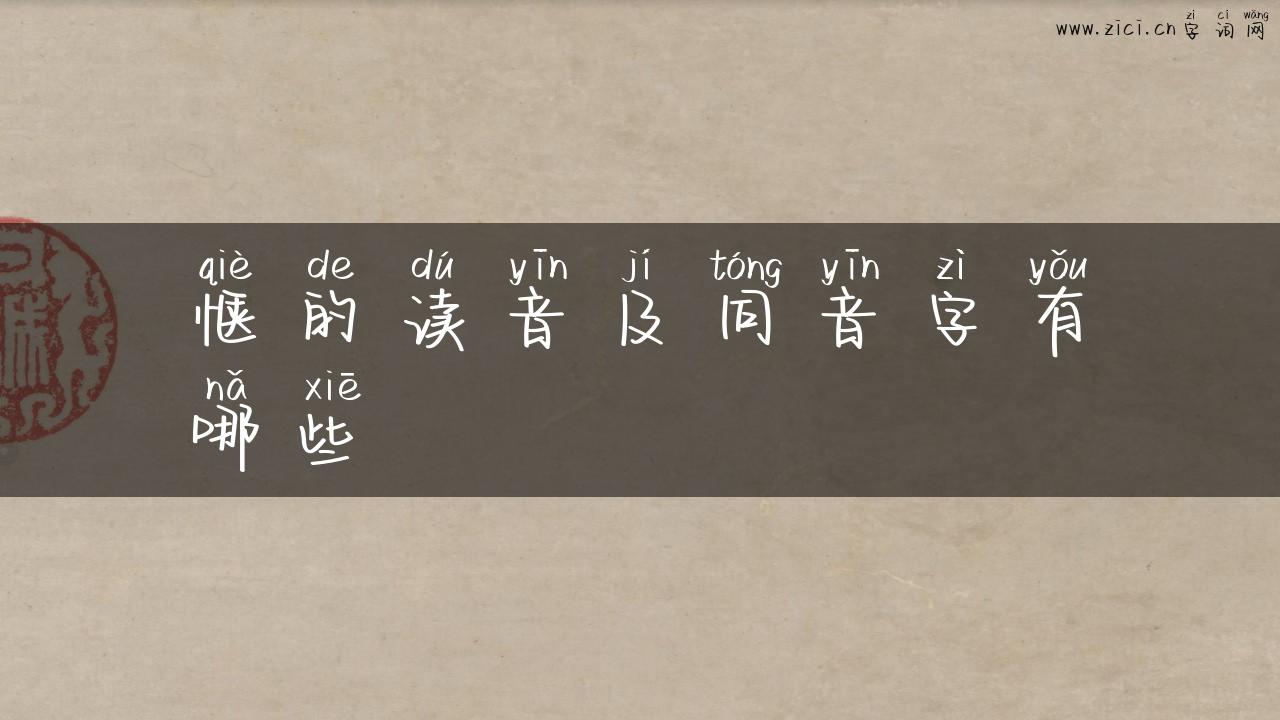 zì cí wǎng
www.zici.cn 字词网
qiè de dú yīn jí tóng yīn zì yǒu
惬的读音及同音字有
nǎ xiē
哪些